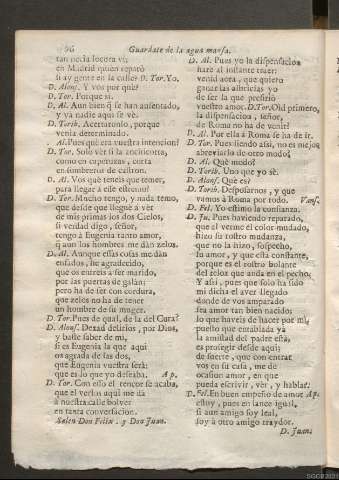 96 Guardate de la agua mansa.
tan necia locora vi;
en Madrid quien reparò
si ay gente en la calle? D. Tor. Yo.
D. Alons. Y vos por què?
D. Tor. Porque si.
D. Al. Aun bien q̃ se han ausentado,
y ya nadie aqui se vè.
D. Torib. Acertaronlo, porque
venia determinado.
Al. Pues què era vuestra intencion?
D. Tor. Solo vèr si la anchicorta,
como en caperuzas, corta
en sombreros de castron.
D. Al. Vos què teneis que temer,
para llegar à este estremo?
D. Tor. Mucho tengo, y nada temo,
que desde que lleguè à vèr
de mis primas los dos Cielos,
si verdad digo, señor,
tengo à Eugenia tanto amor,
q̃ aun los hombres me dàn zelos.
D. Al. Aunque essas cosas me dàn
enfados, he agradecido,
que os entreis a ser marido,
por las puertas de galàn;
pero ha de ser con cordura,
que zelos no ha de tener
un hombre de su muger.
D. Tor. Pues de qual, de la del Cura?
D. Alons. Dexad delirios, por Dios,
y baste saber de mi,
si es Eugenia la que aqui
os agrada de las dos,
que Eugenia vuestra serà;
que es lo que yo deseaba. Ap.
D. Tor. Con esso el rencor se acaba,
que el verlos aqui me dà
à nuestra calle bolver
en tanta conversacion.
Salen Don Felix, y Don Juan.
D. Al. Pues yo la dispensacion
harè al instante traer:
venid aora, que quiero
ganar las albricias yo
de ser la que prefiriò
vuestro amor. D. Tor. Old primero,
la dispensacion, señor,
de Roma no ha de venir?
D. Al. Por ella à Roma se ha de ir.
D. Tor. Pues siendo assi, no es mejor
abreviarlo de otro modo?
D. Al. Què modo?
D. Torib. Uno que yo sè.
D. Alons. Què es?
D. Torib. Desposarnos, y que
vamos à Roma por todo. Vans.
D. Fel. Yo estimo la confianza.
D. Ju. Pues haviendo reparado,
que al verme el color mudado,
hizo su rostro mudanza,
que no la hizo, sospecho,
su amor, y que esta constante,
porque es el rostro bolante
del relox que anda en el pecho:
Y assi, pues que solo ha sido
mi dicha el aver llegado
donde de vos amparado
sea amor tan bien nacido:
lo que haveis de hacer por mi,
puesto que entablada yà
la amistad del padre està,
es proseguir desde aqui;
de suerte, que con entrar
vos en su casa, me dè
ocasion amor, en que
pueda escrivir, vèr, y hablar.
D. Fel. En buen empeño de amor Ap.
estoy, pues en lance igual,
si aun amigo soy leal,
soy à otro amigo traydor.
D. Juan.